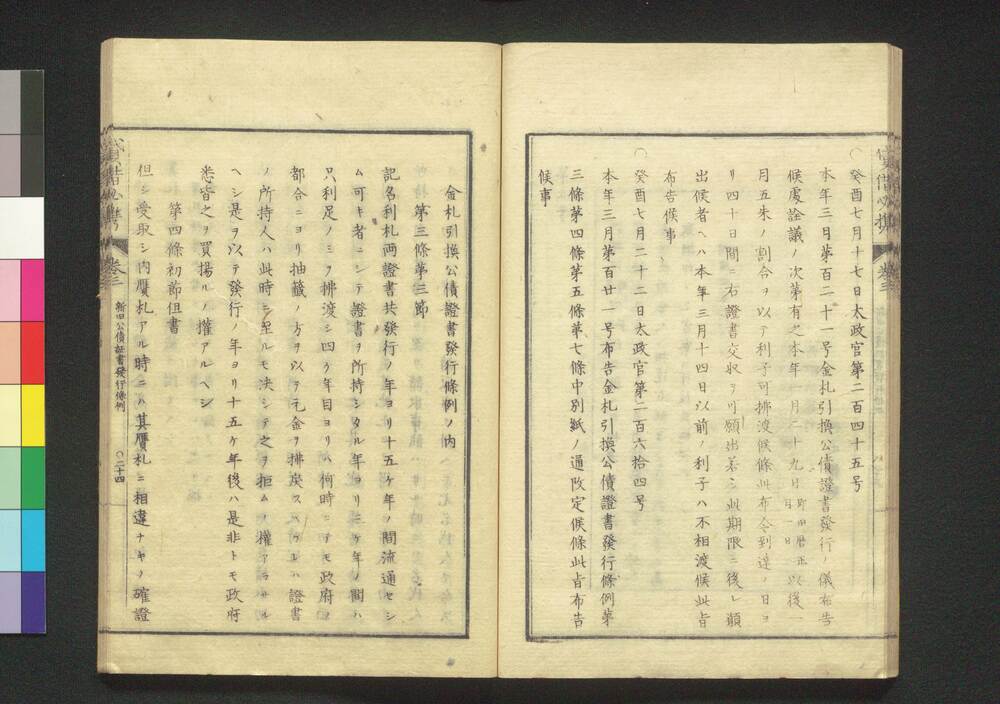 ○癸酉七月十七日太政官第二百四十五号
本年三月第百二十一号金札引換公債證書發行ノ儀布告
候處詮議ノ次第有之本年一月二十九日即旧曆正月一日以後一
月五朱ノ割合ヲ以テ利子可拂渡候條此布令到達ノ日ヨ
リ四十日間ニ右證書交収ヲ可願出若シ此期限ニ後レ願
出候者ヘハ本年三月十四日以前ノ利子ハ不相渡候此旨
布告候事
○癸酉七月二十二日太政官第二百六拾四号
本年三月第百廿一号布告金札引換公債證書發行條例第
三條第四條第五條第七條中別紙ノ通改定候條此旨布告
候事
金札引換公債證書發行條例ノ内
第三條第三節
記名利札両證書共發行ノ年ヨリ十五ケ年ノ間流通セシ
ム可キ者ニシテ證書ヲ所持シタル年ヨリ三ケ年ノ間ハ
只利足ノミヲ拂渡シ四ケ年目ヨリハ何時ニテモ政府ノ
都合ニヨリ抽籤ノ方ヲ以テ元金ヲ拂戾スヘケレハ證書
ノ所持人ハ此時ニ至ルモ决シテ之ヲ拒ムノ權アラサル
ヘシ是ヲ以テ發行ノ年ヨリ十五ケ年後ハ是非トモ政府
悉皆之ヲ買揚ルノ權アルヘシ
第四條初節但書
但シ受取シ内贋札アル時ニハ其贋札ニ相違ナキノ確證
貸借必携 卷三 新旧公債証書發行條例 ○二十四